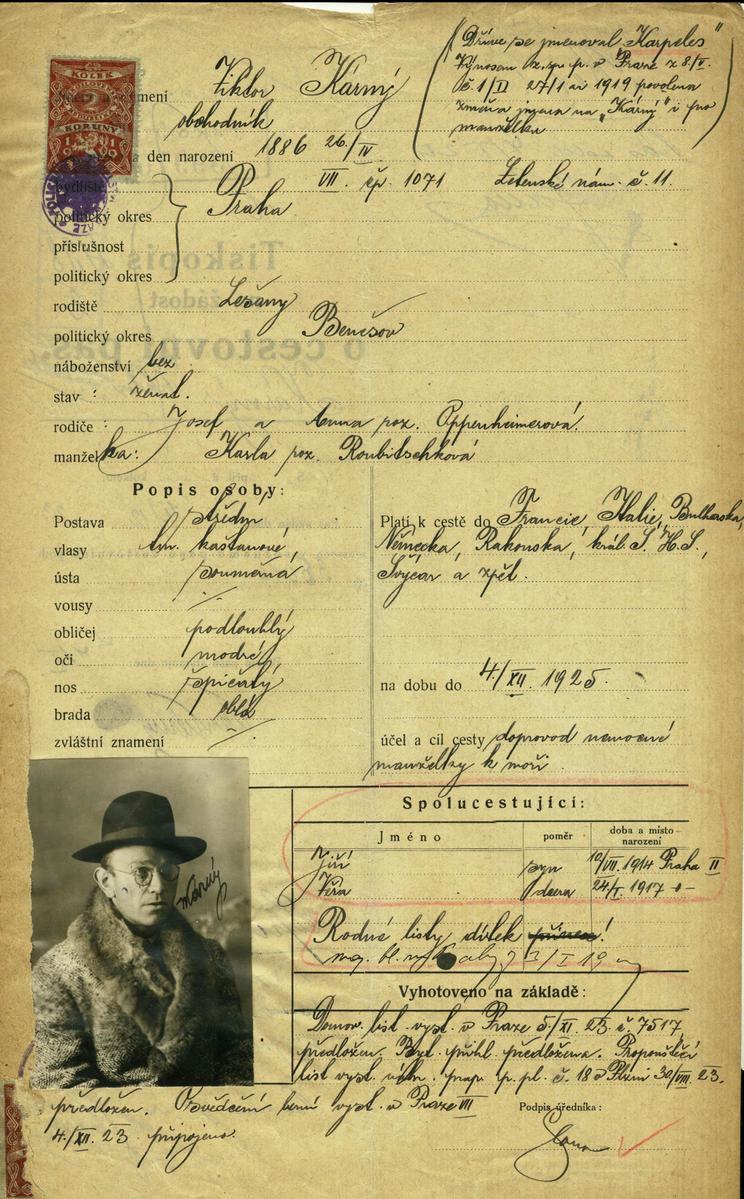 Viktor Kárný
( Dříve se jmenoval "Karpeles"
Výnosem z. sp. p. v Praze z 8./V.
č. 1/II 27/1 ai 1919 povolena
změna jmena na "Kárný" i pro
manželku )
KOLEK
KORUNY
jmení
obchodník
a den narození 1886 26./IV
bydliště VII. čp. 1071 Letenské nám. č. 11.
politický okres Praha
příslušnost
politický okres
rodiště Lešany
politický okres Benešov
náboženství bez
stav : ženat.
rodiče : Josef a Anna roz. Oppenheimerová.
manželka: Karla roz. Roubitschková
Popis osoby:
Postava střední
vlasy tm. kaštanové,
ústa souměrná
vousy ./.
obličej podlouhlý
oči modré
nos špičatý
brada oblá
zvláštní znamení ./.
Platí k cestě do Francie, Italie, Bulharska,
Německa, Rakouska, král. S. H. S.,
Švýcar a zpět.
na dobu do 4./XII. 1925.
účel a cíl cesty doprovod nemocné
manželky k moři.
Kárný
Spolucestující:
Jméno poměr doba a místo narození
Jiří syn 10/VII. 1914 Praha II
Věra dcera 24/I. 1917 -"-
Rodné listy dítek !
Vyhotoveno na základě :
Domov. list vyst. v Praze 5./XI. 23. č. 7517
předložen. Byt. přihl. předložena. Propouštěcí
list vyst. p. pl. č. 18 v Plzni 30/VIII. 23.
předložen. Osvědčení berní vyst. v Praze VII
4./XII. 23 připojeno.
Podpis úředníka :